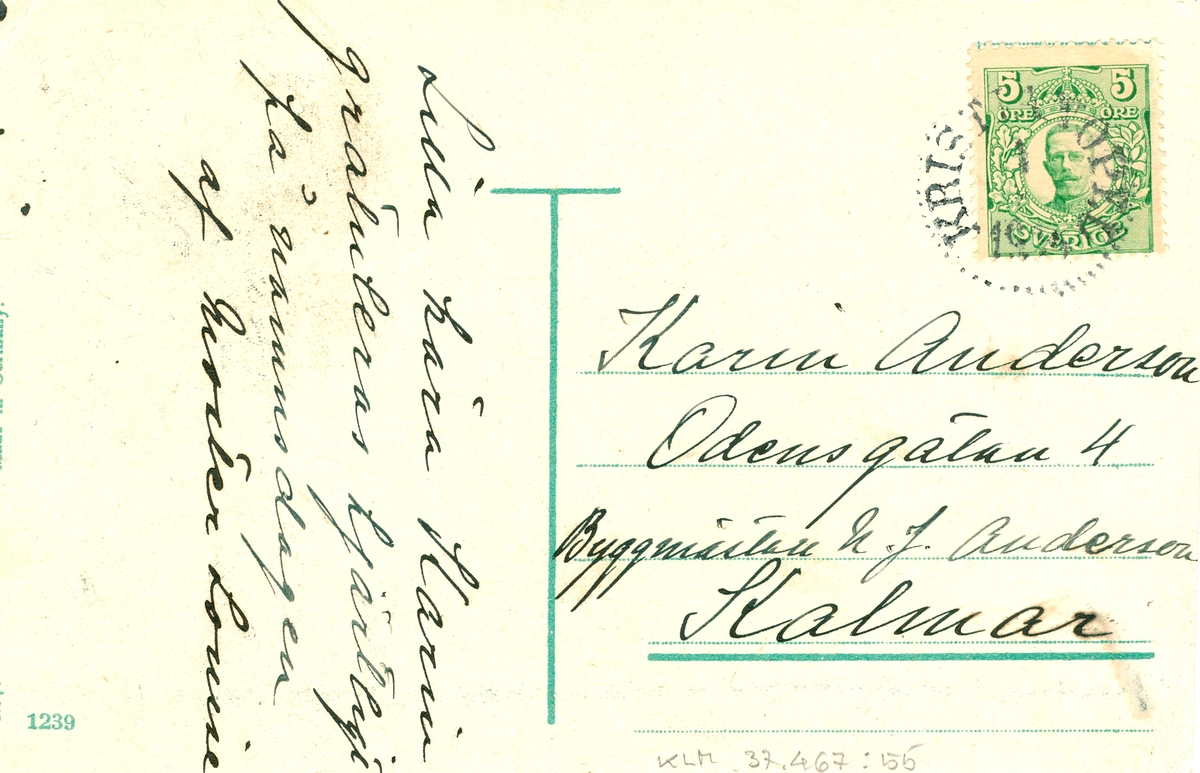 Lilla kära Karin
gratuleras hjärtligt
på namnsdagen
af Moster Lovisa
5 5
ÖRE ÖRE
SVERIGE
Karin Anderson
Odensgatan 4
Byggmästare N. J. Anderson
Kalmar
1239
KLM 37.467:55